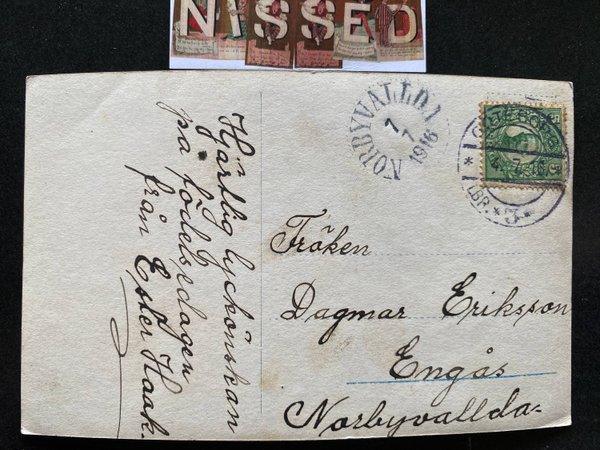 NISSED
Hjärtlig lyckönskan
på födelsedagen
från Ester Haak.
NORBYVALLDA
7
7
1916
LBR.
3
Fröken
Dagmar Eriksson
Engås
Norbyvallda-